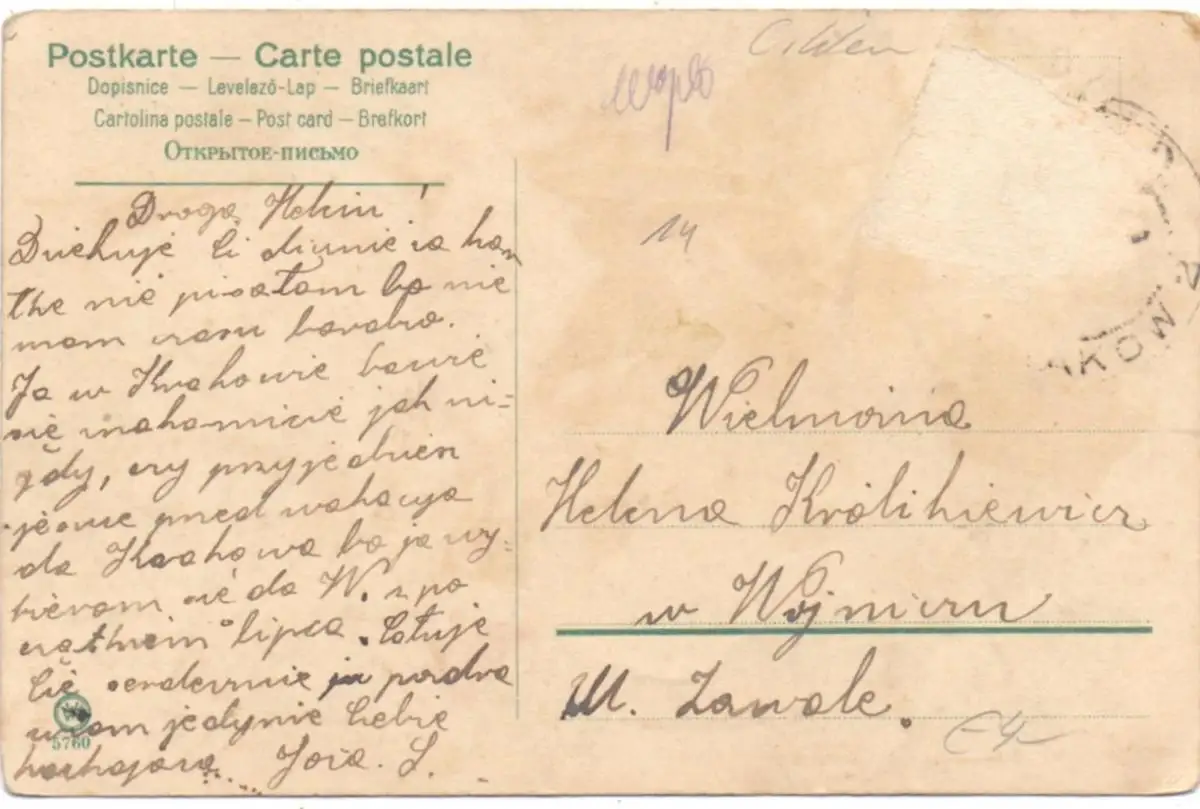 Postkarte — Carte postale
Dopisnice — Levelező-Lap — Briefkaart
Cartolina postale — Post card — Brefkort
Открытое-письмо
Droga Helciu!
Dziękuję Ci ślicznie za kar
tkę nie pisałam bo nie
mam czasu bardzo.
Ja w Krakowie bawię
się znakomicie jak ni-
gdy, czy przyjedziesz
jeszcze przed wakacyą
do Krakowa bo ja wy-
bieram się do W. z po
czątkiem lipca. Całuję
Cię serdecznie i pozdra
wiam jedynie Ciebie
kochająca Zosia. S.
5760
14
AKOW
Wielmożna
Helena Królikiewicz
w Wojniczu
Ul. Zawale.